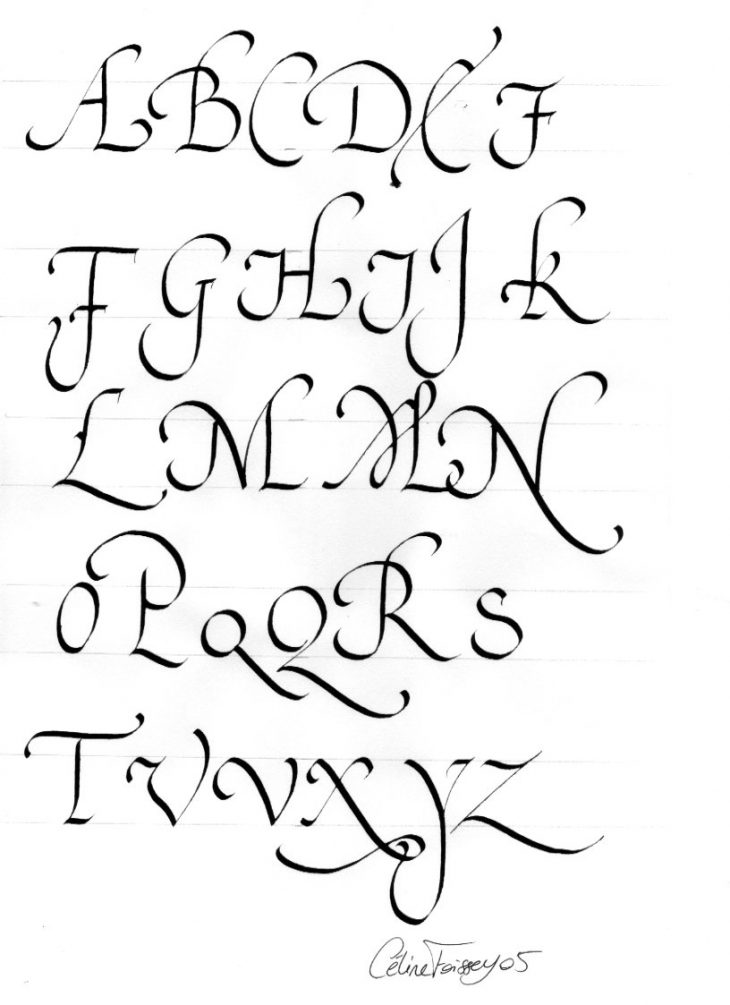 A B C D E F
F G H I J K
L M M N
O P Q Q R S
T V V X Y Z
Céline 05